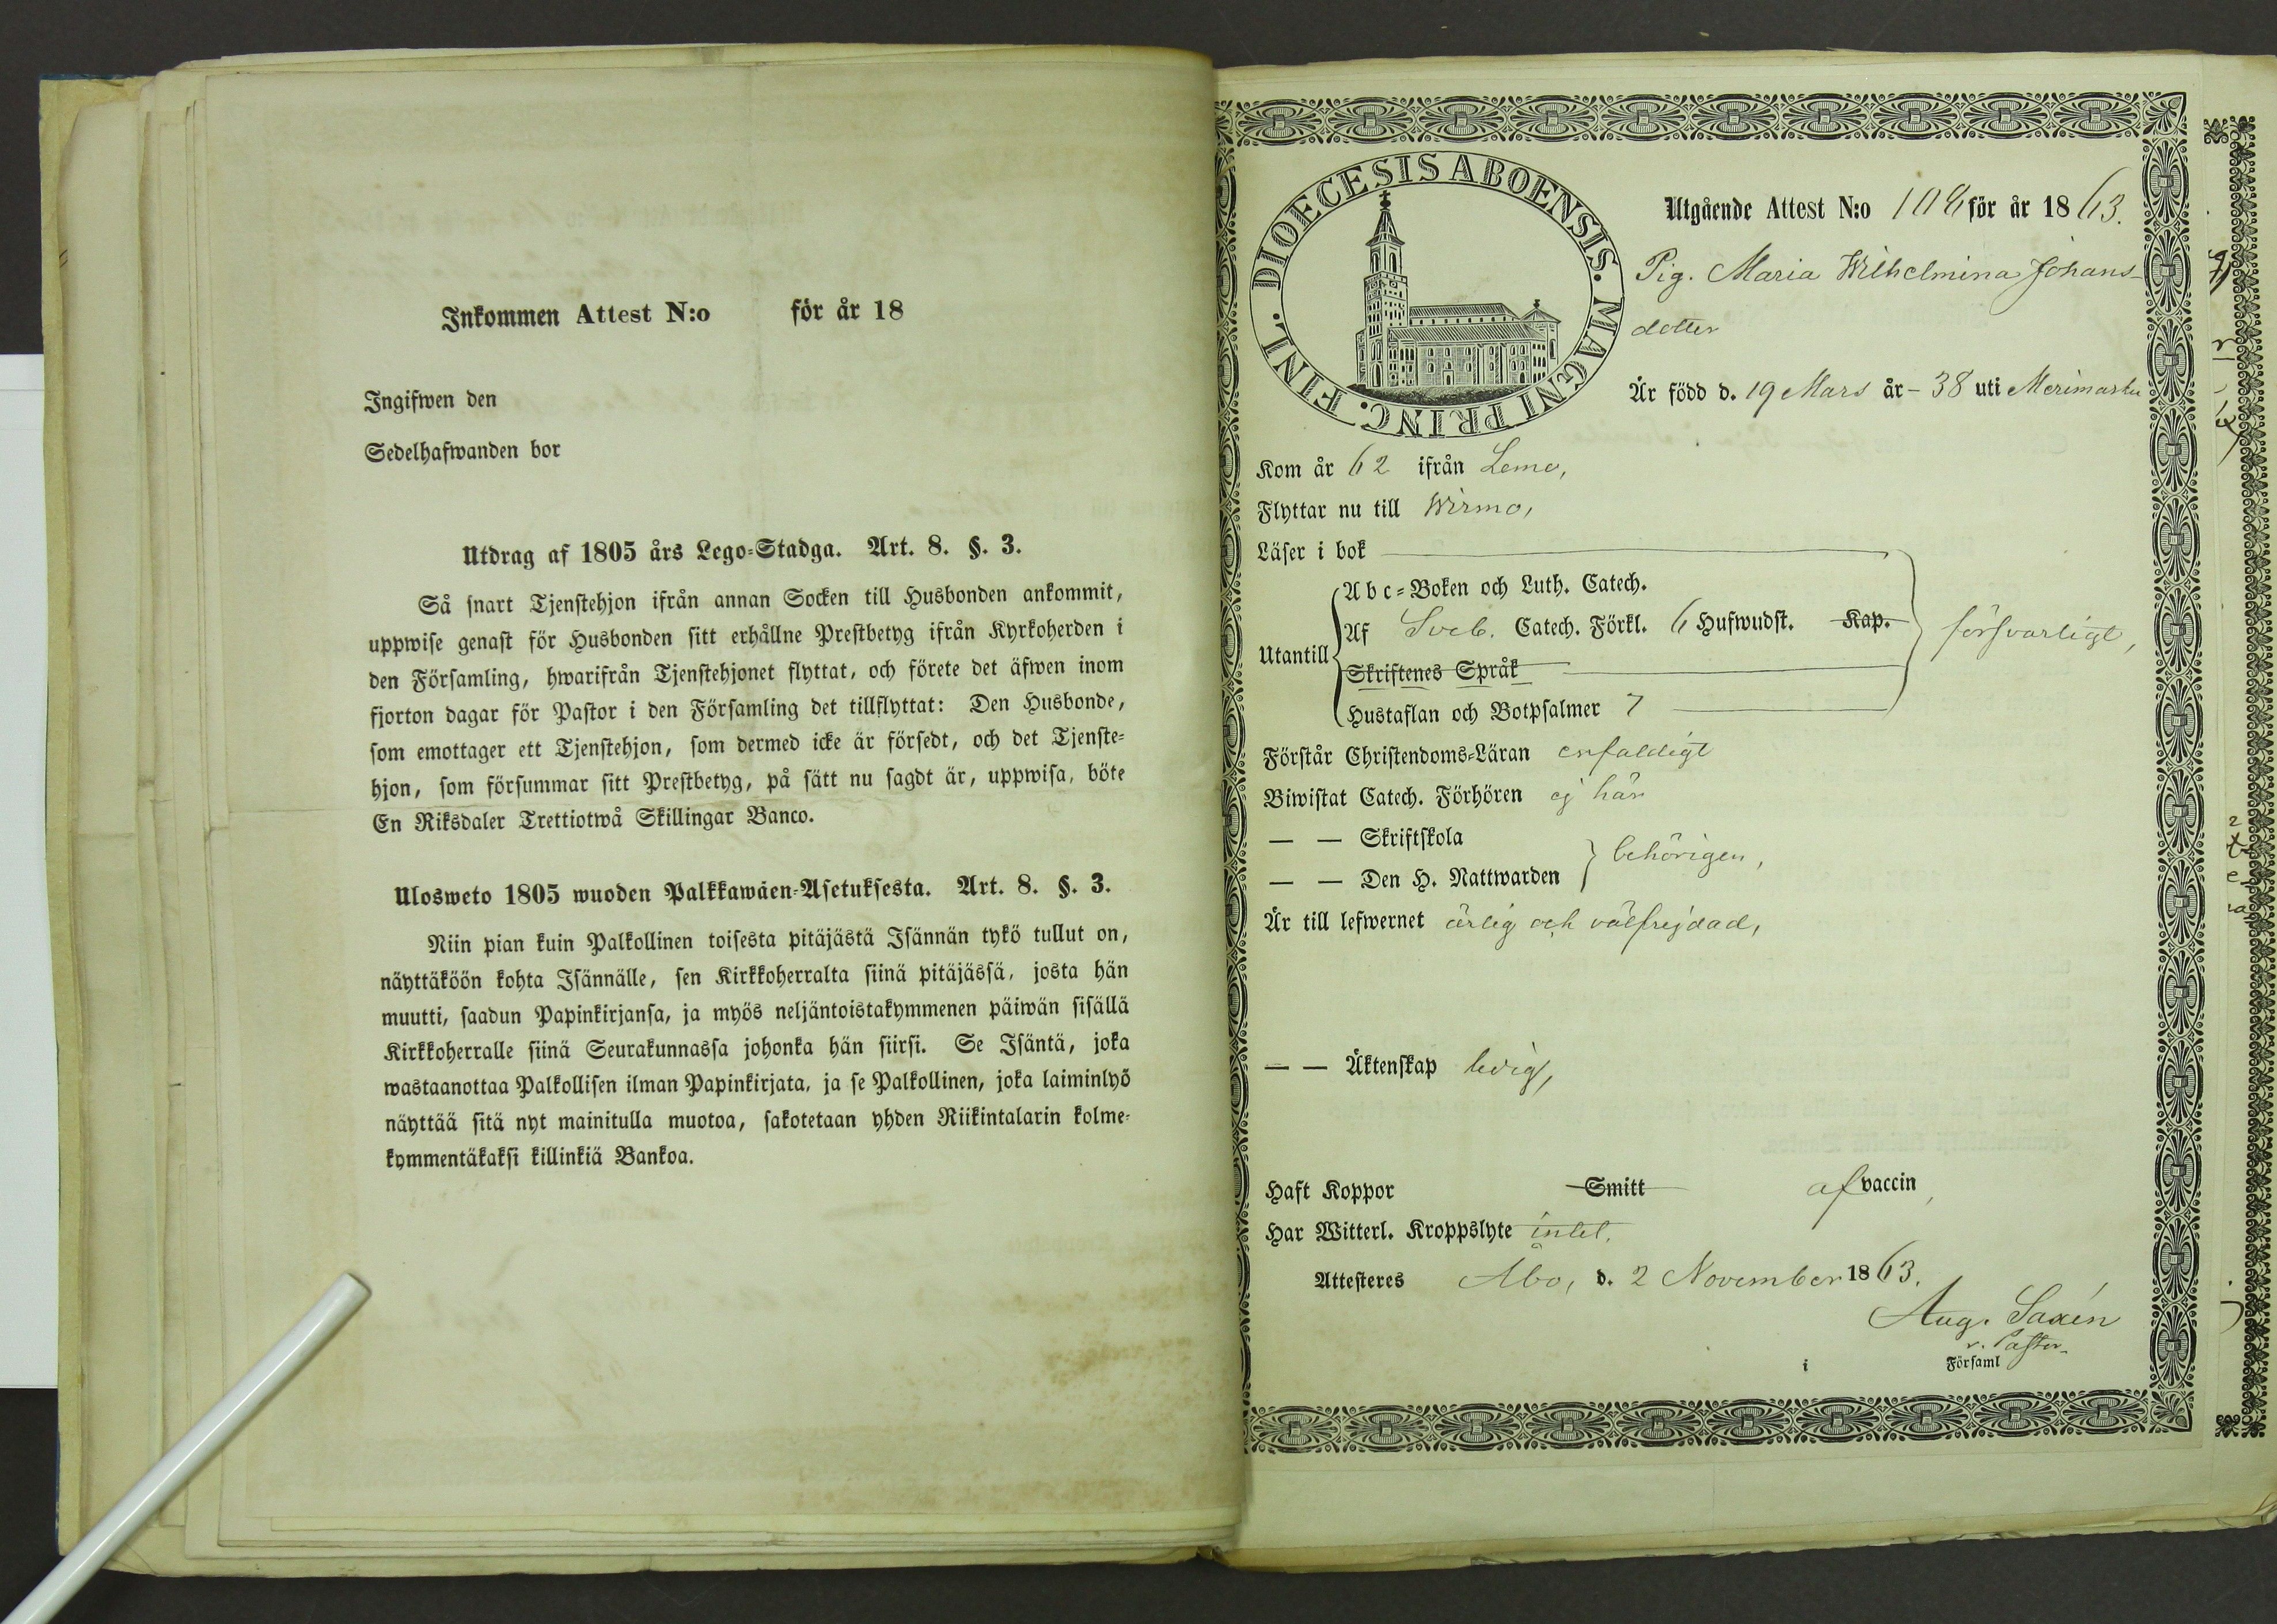 Inkommen Attest N:o för år 18
Ingifwen den
Sedelhafwanden bor
Utdrag af 1805 års Lego-Stadga. Art. 8. §. 3.
Så snart Tjenstehjon ifrån annan Socken till Husbonden ankommit,
uppwise genast för Husbonden sitt erhållne Prestbetyg ifrån Kyrkoherden i
den Församling, hwarifrån Tjenstehjonet flyttat, och förete det äfwen inom
fjorton dagar för Pastor i den Församling det tillflyttat: Den Husbonde,
som emottager ett Tjenstehjon, som dermed icke är försedt, och det Tjenste-
hjon, som försummar sitt Prestbetyg, på sätt nu sagdt är, uppwisa, böte
En Riksdaler Trettiotwå Skillingar Banco.
Ulosweto 1805 wuoden Palkkawäen-Asetuksesta. Art. 8. §. 3.
Niin pian kuin Palkollinen toisesta pitäjästä Isännän tykö tullut on,
näyttäköön kohta Isännälle, sen Kirkkoherralta siinä pitäjässä, josta hän
muutti, saadun Papinkirjansa, ja myös neljäntoistakymmenen päiwän sisällä
Kirkkoherralle siinä Seurakunnassa johonka hän siirsi. Se Isäntä, joka
wastaanottaa Palkollisen ilman Papinkirjata, ja se Palkollinen, joka laiminlyö
näyttää sitä nyt mainitulla muotoa, sakotetaan yhden Riikintalarin kolme-
kymmentäkaksi killinkiä Bankoa.
DIOECESIS ABOENSIS. MAGNI PRINC. FINL.
Utgående Attest N:o för år 1863.
Pig. Maria Wilhelmina Johans-
dotter
Är född d. 19 Mars år -38 uti Merimasku
Kom år 62 ifrån Lemo,
Flyttar nu till Wirmo,
Läser i bok
Utantill
Abc-Boken och Luth. Catech.
Af Sveb. Catech. Förkl. 6 Hufwudst. Kap.
försvarligt,
Skriftenes Språk
Hustaflan och Botpsalmer 7
Förstår Christendoms-Läran enfaldigt
Biwistat Catech. Förhören ej här
— — Skriftskola
behörigen,
— — Den H. Nattwarden
Är till lefwernet ärlig och välfrejdad,
— — Äktenskap ledig,
Haft Koppor Smitt af vaccin,
Har Witterl. Kroppslyte intet.
Attesteres Åbo, d. 2 November 1863.
Aug. Saxén
v. Pastor.
i Församl